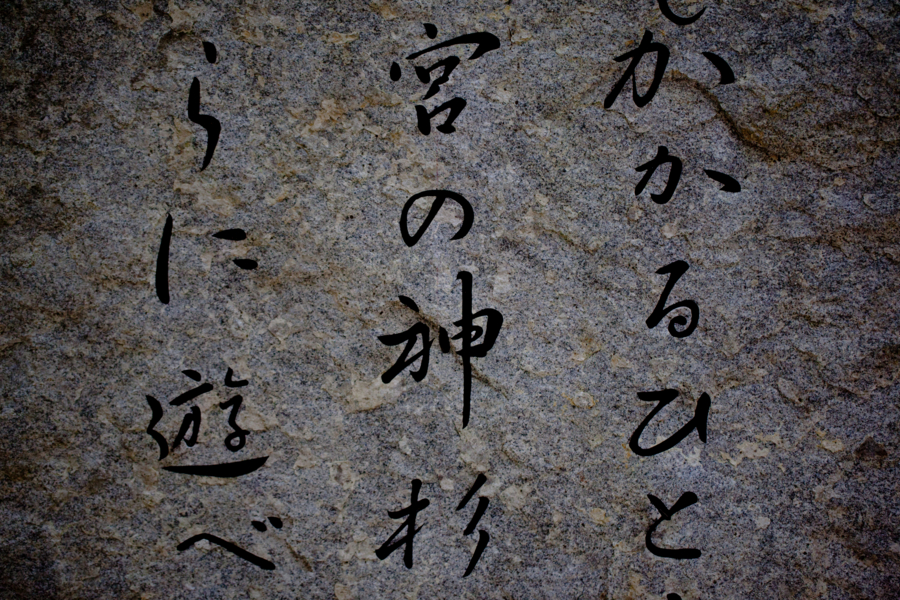 かかるひと
宮の神杉
らに遊べ